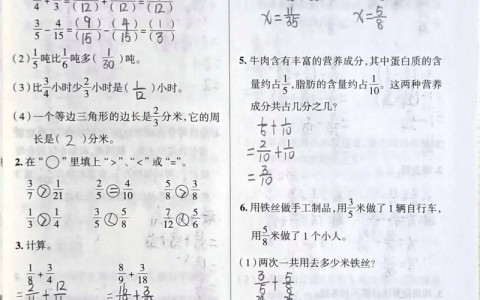 1/4 + 2/3 = (  )/(12) + (  )/(12) = (  )/(12)
3/5 - 4/15 = (9)/(15) - (4)/(15) = (1)/(3)
(2) 1/5吨比1/6吨多( 1/30 )吨。
(3) 比3/4小时少2/3小时是( 1/12 )小时。
(4) 一个等边三角形的边长是2/3分米,它的周
长是( 2 )分米。
3. 在“○”里填上“>”、“<”或“=”。
3/7 > 1/21 2/5 = 4/10 5/8 > 3/8
1/3 > 1/4 3/5 < 5/8 7/12 < 5/6
3. 计算。
1/8 + 3/4 8/9 + 3/18
x = 11/35 x = 5/8
5. 牛肉含有丰富的营养成分,其中蛋白质的含
量约占1/5,脂肪的含量约占1/10。这两种营养
成分共占几分之几?
1/5 + 1/10
= 2/10 + 1/10
= 3/10
6. 用铁丝做手工制品,用3/5米做了1辆自行车,
用5/8米做了1个小人。
(1) 两次一共用去多少米铁丝?
3/5 + 5/8